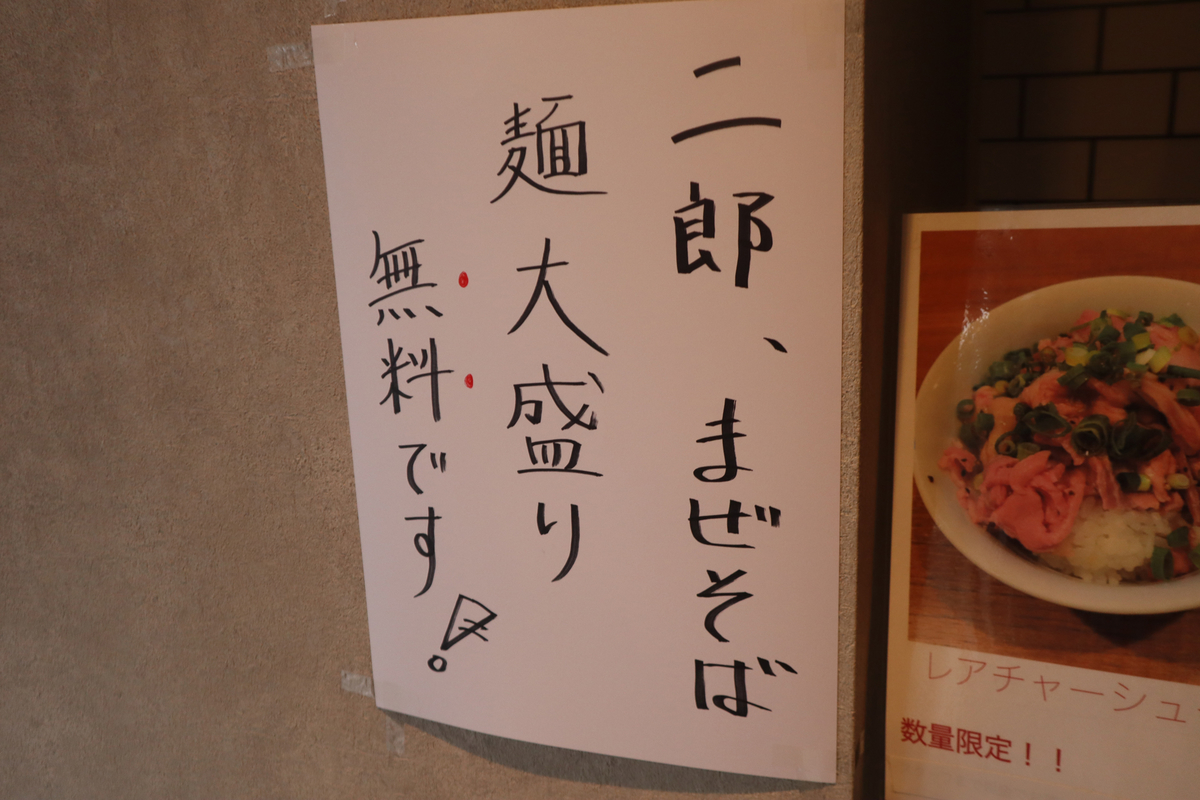 二郎、まぜそば
麺大盛り
無料です!
レアチャーシュ
数量限定!!